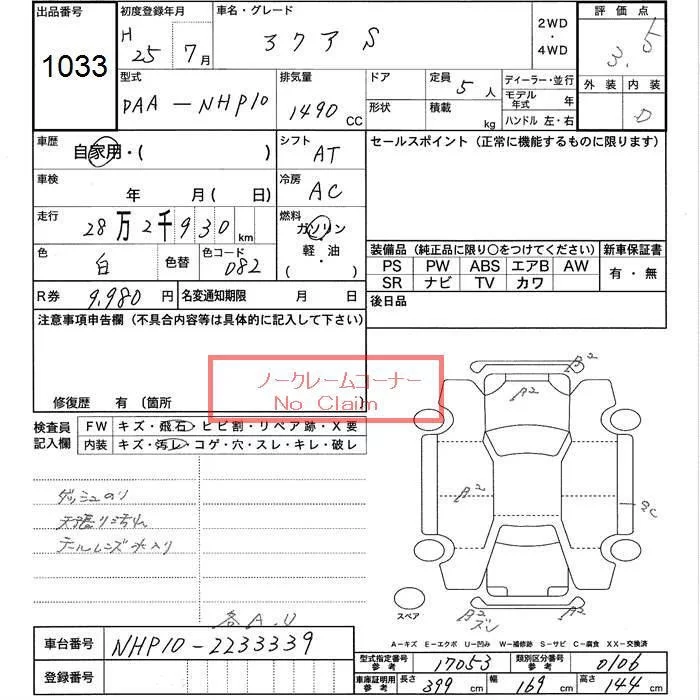 出品番号
1033
初度登録年月
H 25年 7月
車名・グレード
アクア S
2WD・4WD
評価点
3.5
外装 内装
D
型式
DAA-NHP10
排気量
1490 CC
ドア
形状
定員 5人
積載 kg
ディーラー・並行
モデル年式 年
ハンドル 左・右
車歴
自家用・( )
シフト AT
セールスポイント (正常に機能するものに限ります)
車検 年 月( 日)
冷房 AC
走行
28万2千930km
燃料
ガソリン・軽油
( )
色 白
色替
色コード 082
装備品 (純正品に限り○をつけてください)
新車保証書
PS PW ABS エアB AW
SR ナビ TV カワ
有・無
R券 9,980円
名変通知期限 月 日
後日品
注意事項申告欄 (不具合内容等は具体的に記入して下さい)
ノークレームコーナー
No Claim
修復歴 有 (箇所 )
検査員記入欄
FW キズ・飛石・ヒビ割・リペア跡・X要
内装 キズ・汚レ・コゲ・穴・スレ・キレ・破レ
ダッシュのり
天張り汚れ
テールレンズ水入り
各A.U
B2
A2
A2
A2
B2
ズレ
スペア
A-キズ E-エクボ U-凹み W-補修跡 S-サビ C-腐食 XX-交換済
車台番号 NHP10-2233339
登録番号
型式指定番号 参考 17053
類別区分番号 参考 0106
車庫証明用 参考 長さ 399 cm 幅 169 cm 高さ 144 cm